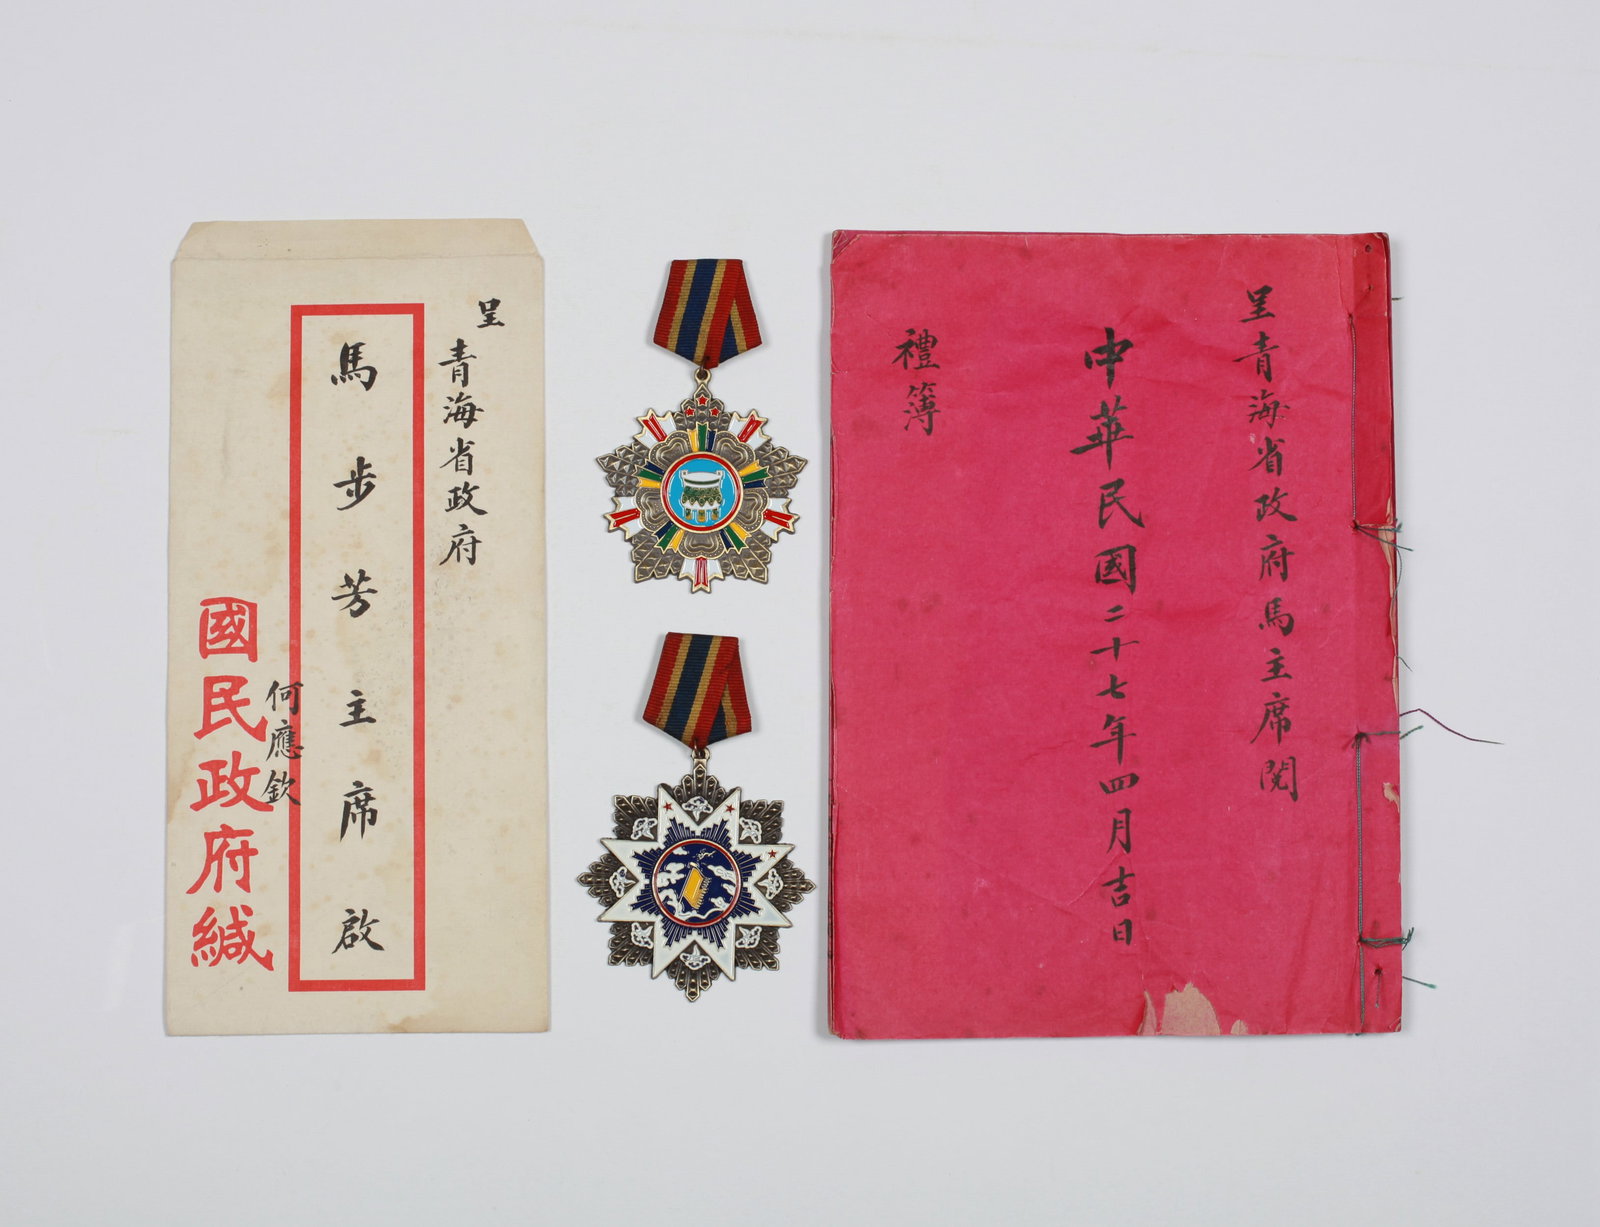 呈
青海省政府
馬步芳主席啟
何應欽
國民政府緘
呈青海省政府馬主席閱
中華民國二十七年四月吉日
禮簿